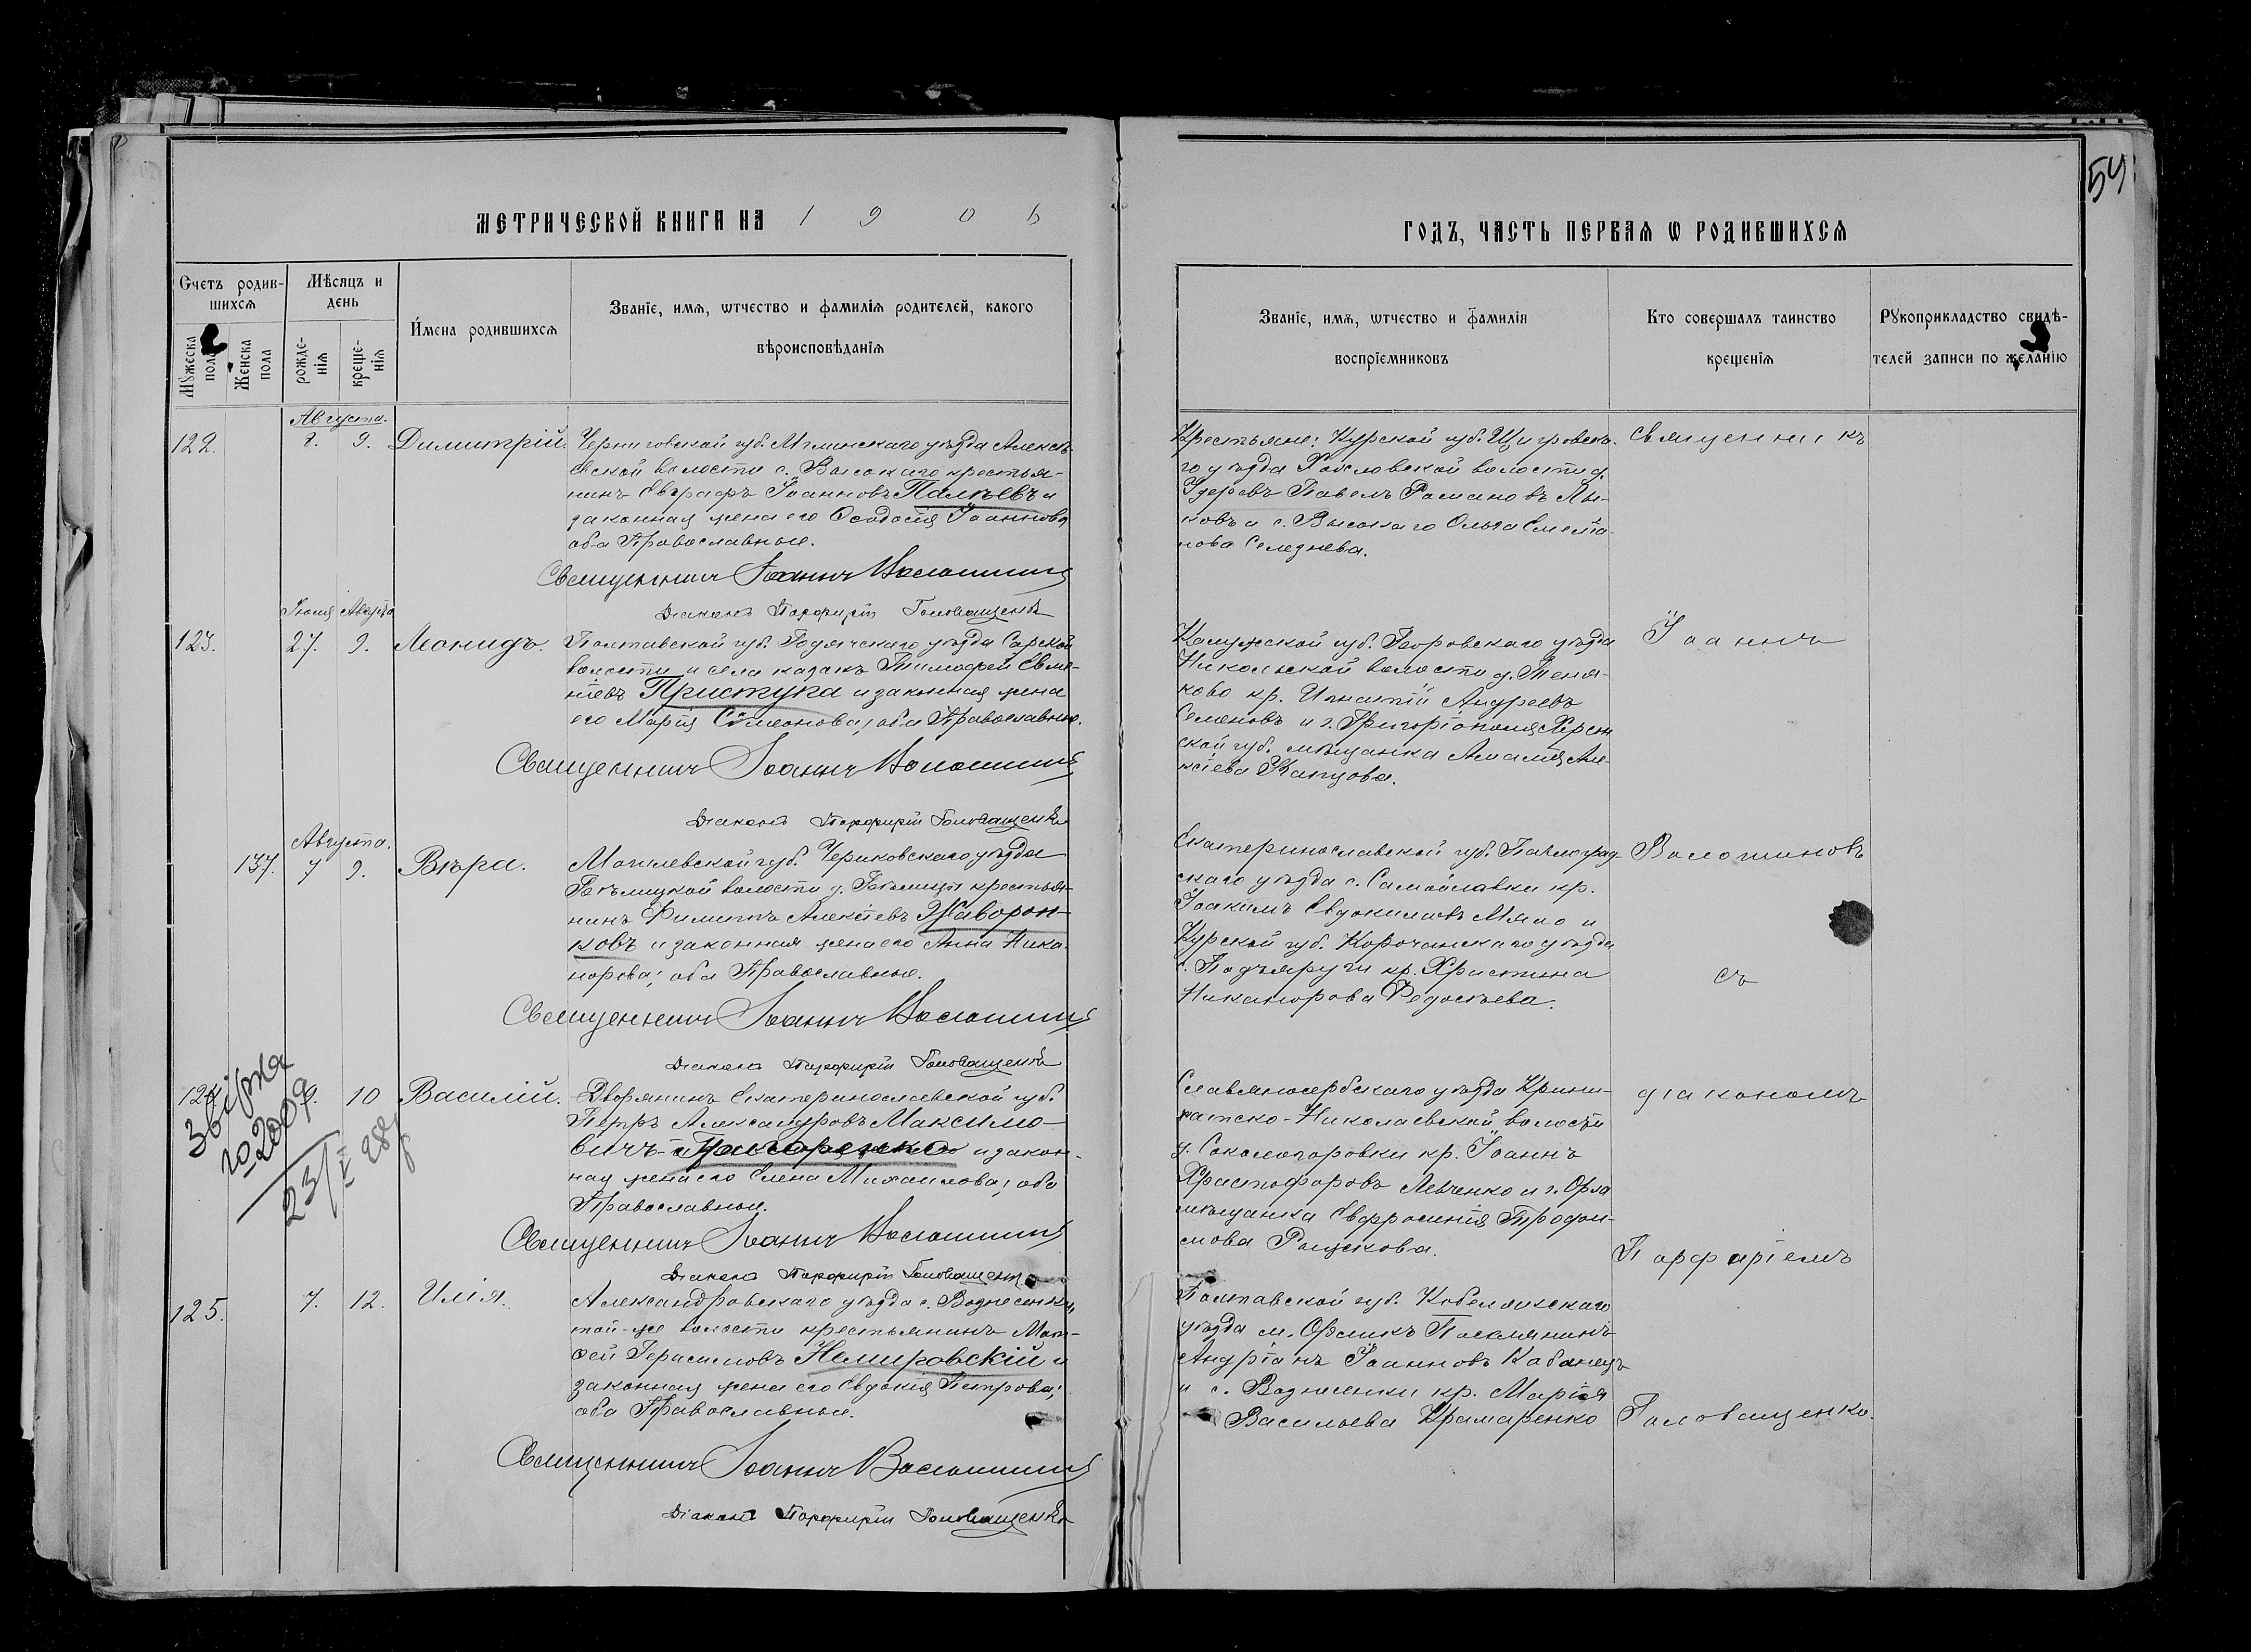 54
МЕТРИЧЕСКОЙ КНИГИ НА 1906
ГОДЪ, ЧАСТЬ ПЕРВАЯ Ѡ РОДИВШИХСЯ
Счетъ родив-
шихся
Мѣсяцъ и
день
Имена родившихся
Званіе, имя, ѡтчество и фамилія родителей, какого
вѣроисповѣданія
Мужеска
пола
Женска
пола
рожде-
нія
креще-
нія
Званіе, имя, ѡтчество и фамилія
воспріемниковъ
Кто совершалъ таинство
крещенія
Рукоприкладство свидѣ-
телей записи по желанію
Августа.
122. 9. Димитрій.
Черниговской губ. Мглинскаго уѣзда Алексѣ-
евской волости с. Высокаго крестья-
нинъ Евграфъ Іоанновъ Палѣевъ и
законная жена его Ѳеодосія Іоаннова
оба Православные.
Священникъ Іоаннъ Волошиновъ
Діаконъ Порфирій Головащенко
Крестьяне: Курской губ. Щигровска-
го уѣзда волости д.
Удеревъ Павелъ Романовъ Лы-
ковъ и с. Высокаго Ольга
Селезнева.
Священникъ
Іюля Августа
123. 27. 9. Леонидъ.
Полтавской губ. Гадячскаго уѣзда Сарской
волости и села казакъ Тимофей Евме-
ніевъ Приступа и законная жена
его Марія Симеонова; оба Православные.
Священникъ Іоаннъ Волошиновъ
Діаконъ Порфирій Головащенко
Калужской губ. Боровскаго уѣзда
Никольской волости д. Теня-
ково кр. Игнатій Андреевъ
Семеновъ и г. Григоріополя Херсон
ской губ. мѣщанка Амалія Але-
ксіева Капцова.
Іоаннъ
Августа.
137. 7 9. Вѣра.
Могилевской губ. Чериковскаго уѣзда
волости д. крестья-
нинъ Филиппъ Алексіевъ Жаворон-
ковъ и законная жена его Анна Ника-
норова; оба Православные.
Священникъ Іоаннъ Волошиновъ
Діаконъ Порфирій Головащенко
Екатеринославской губ. Павлоград-
скаго уѣзда с. Самойловки кр.
Іоакимъ Евдокимовъ Мяло и
Курской губ. Корочанскаго уѣзда
с. Подъяруги кр. Христина
Никанорова Федосѣева.
Волошиновъ
съ
124. 9. 10 Василій.
Звірка
20 2009
23/X 28 р
Дворянинъ Екатеринославской губ.
Петръ Александровъ Максимо-
вичъ- и закон-
ная жена его Елена Михаилова; оба
Православные.
Священникъ Іоаннъ Волошиновъ
Діаконъ Порфирій Головащенко
Славяносербскаго уѣзда Крини-
чатско-Николаевской волости
д. Сокологоровки кр. Іоаннъ
Христофоровъ Левченко и г. Орла
мѣщанка Евфросинія Трофи-
мова
діакономъ
Порфиріемъ
125. 7. 12. Илія.
Александровскаго уѣзда с. Вознесенки,
той-же волости крестьянинъ Мат-
ѳей Герасимовъ Немировскій и
законная жена его Евдокія Петрова;
оба Православные.
Священникъ Іоаннъ Волошиновъ
Діаконъ Порфирій Головащенко
Полтавской губ. Кобелякскаго
уѣзда м. Орликъ Поселянинъ
Андріанъ Іоанновъ Кабанецъ
и с. Вознесенки кр. Марія
Васильева Крамаренко
Головащенко.